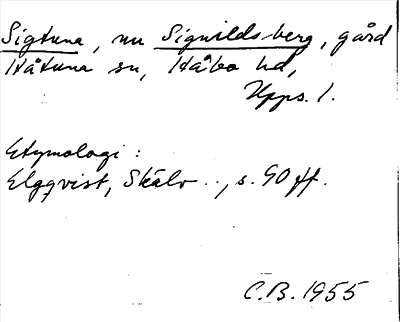 Sigtuna, nu Signildsberg, gård
Håtuna sn, Håbo hd,
Upps. l.
Etymologi:
Elgqvist, Skälv.., s. 90 ff.
C.B. 1955